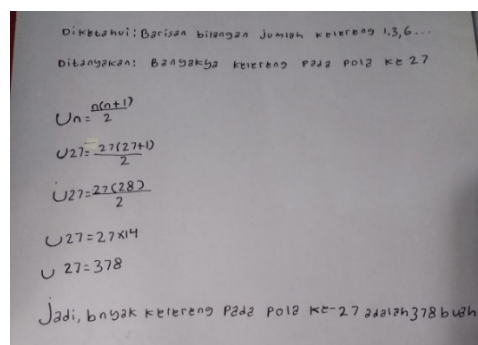 Diketahui: Barisan bilangan jumlah kelereng 1,3,6...
Ditanyakan: Banyakya kelereng pada pola ke 27
Un = n(n+1)/2
U27 = 27(27+1)/2
U27 = 27(28)/2
U27 = 27x14
U27 = 378
Jadi, bnyak kelereng pada pola ke-27 adalah 378 buah